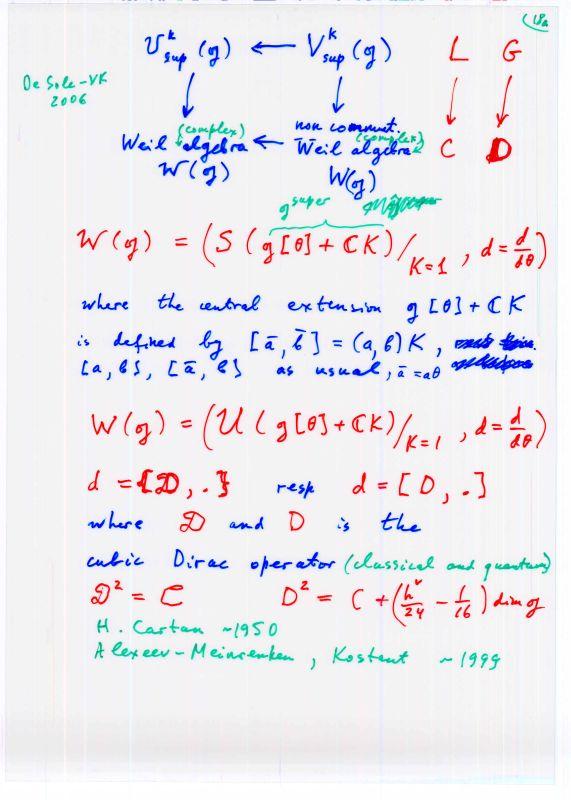 18a
𝒱ᵏsup (g) ← Vᵏsup (g) L G
De Sole-VK
2006
↓ ↓ ↓ ↓
(complex) non commut. (complex)
Weil algebra ← Weil algebra C D
𝒲(g) W(g)
g super
𝒲(g) = (S (g[θ] + ℂK)/K=1 , d = d/dθ)
where the central extension g[θ] + ℂK
is defined by [ā, b̄] = (a, b)K,
[a, b], [ā, b] as usual, ā = aθ
W(g) = (U (g[θ] + ℂK)/K=1 , d = d/dθ)
d = {𝒟, .} resp d = [D, .]
where 𝒟 and D is the
cubic Dirac operator (classical and quantum)
𝒟² = 𝒞 D² = C + (h^v/24 - 1/16) dim g
H. Cartan ~1950
Alexeev-Meinrenken, Kostant ~1999